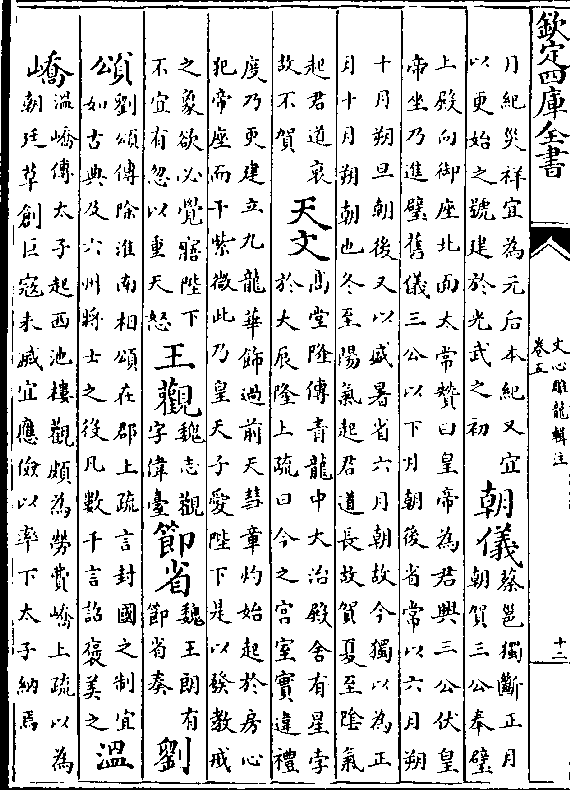 欽定四庫全書
文心雕龍輯注
卷五
十二
月紀災祥宜為元后本紀又宜
以更始之號建於光武之初
朝儀
蔡邕獨斷正月
朝賀三公奉璧
上殿向御座北面太常贊曰皇帝為君興三公伏皇
帝坐乃進璧舊儀三公以下月朝後省常以六月朔
十月朔旦朝後又以盛暑省六月朝故今獨以為正
月十月朔朝也冬至陽氣起君道長故賀夏至陰氣
起君道衰
故不賀
天文
高堂隆傳青龍中大治殿舍有星孛
於大辰隆上疏曰今之宫室實違禮
度乃更建立九龍華飾過前天彗章灼始起於房心
犯帝座而干紫微此乃皇天子愛陛下是以發教戒
之象欲必覺寤陛下
不宜有忽以重天怒
王觀
魏志觀
字偉臺
節省
魏王朗有
節省奏
劉
頌
劉頌傳除淮南相頌在郡上疏言封國之制宜
如古典及六州將士之役凡數千言詔褒美之
溫
嶠
溫嶠傳太子起西池樓觀頗為勞費嶠上疏以為
朝廷草創巨寇未滅宜應儉以率下太子納焉